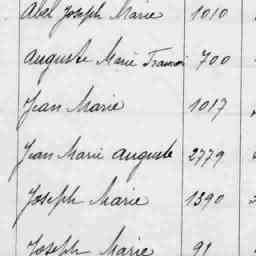 Abel Joseph Marie 1010
Auguste Marie François 700
Jean Marie 1017
Jean Marie Auguste 2779
Joseph Marie 1390
Joseph Marie 91